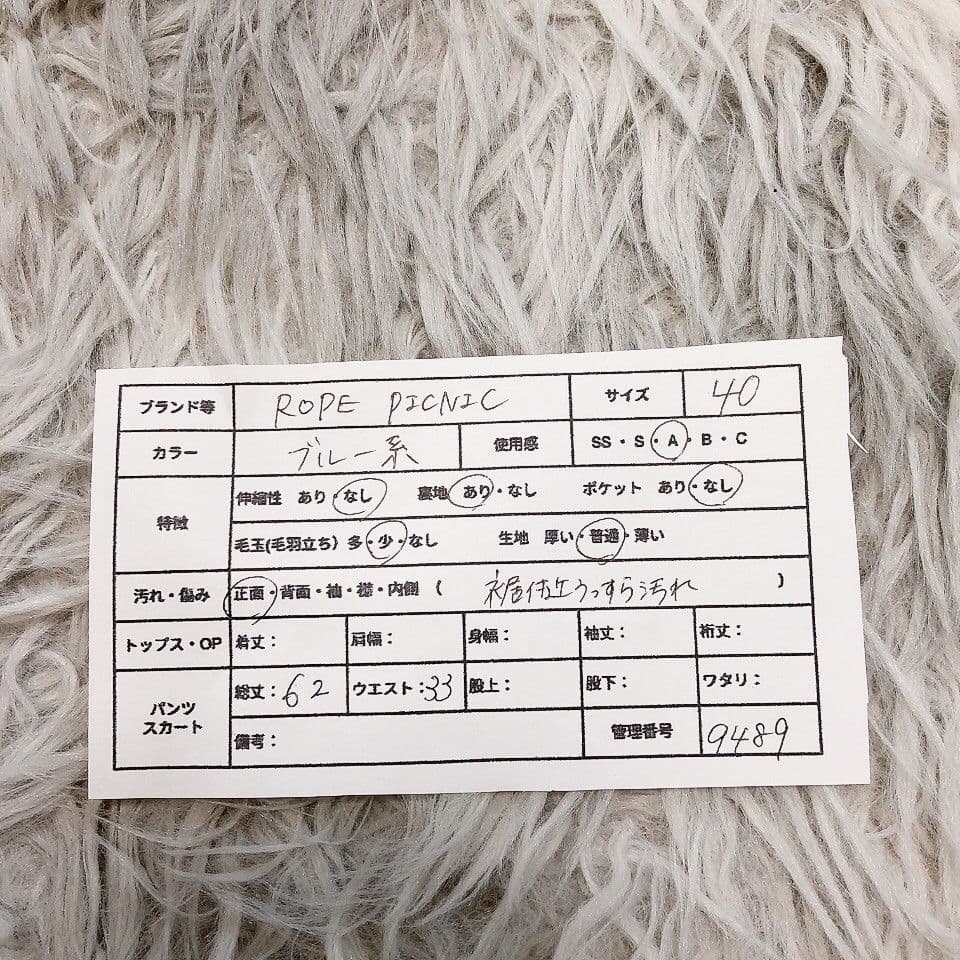 ブランド等 ROPE PICNIC サイズ 40
カラー ブルー系 使用感 SS・S・A・B・C
特徴 伸縮性 あり・なし 裏地 あり・なし ポケット あり・なし
毛玉(毛羽立ち) 多・少・なし 生地 厚い・普通・薄い
汚れ・傷み 正面・背面・袖・襟・内側 ( うっすら汚れ )
トップス・OP 着丈： 肩幅： 身幅： 袖丈： 裄丈：
パンツ スカート 総丈：62 ウエスト：33 股上： 股下： ワタリ：
備考： 管理番号 9489